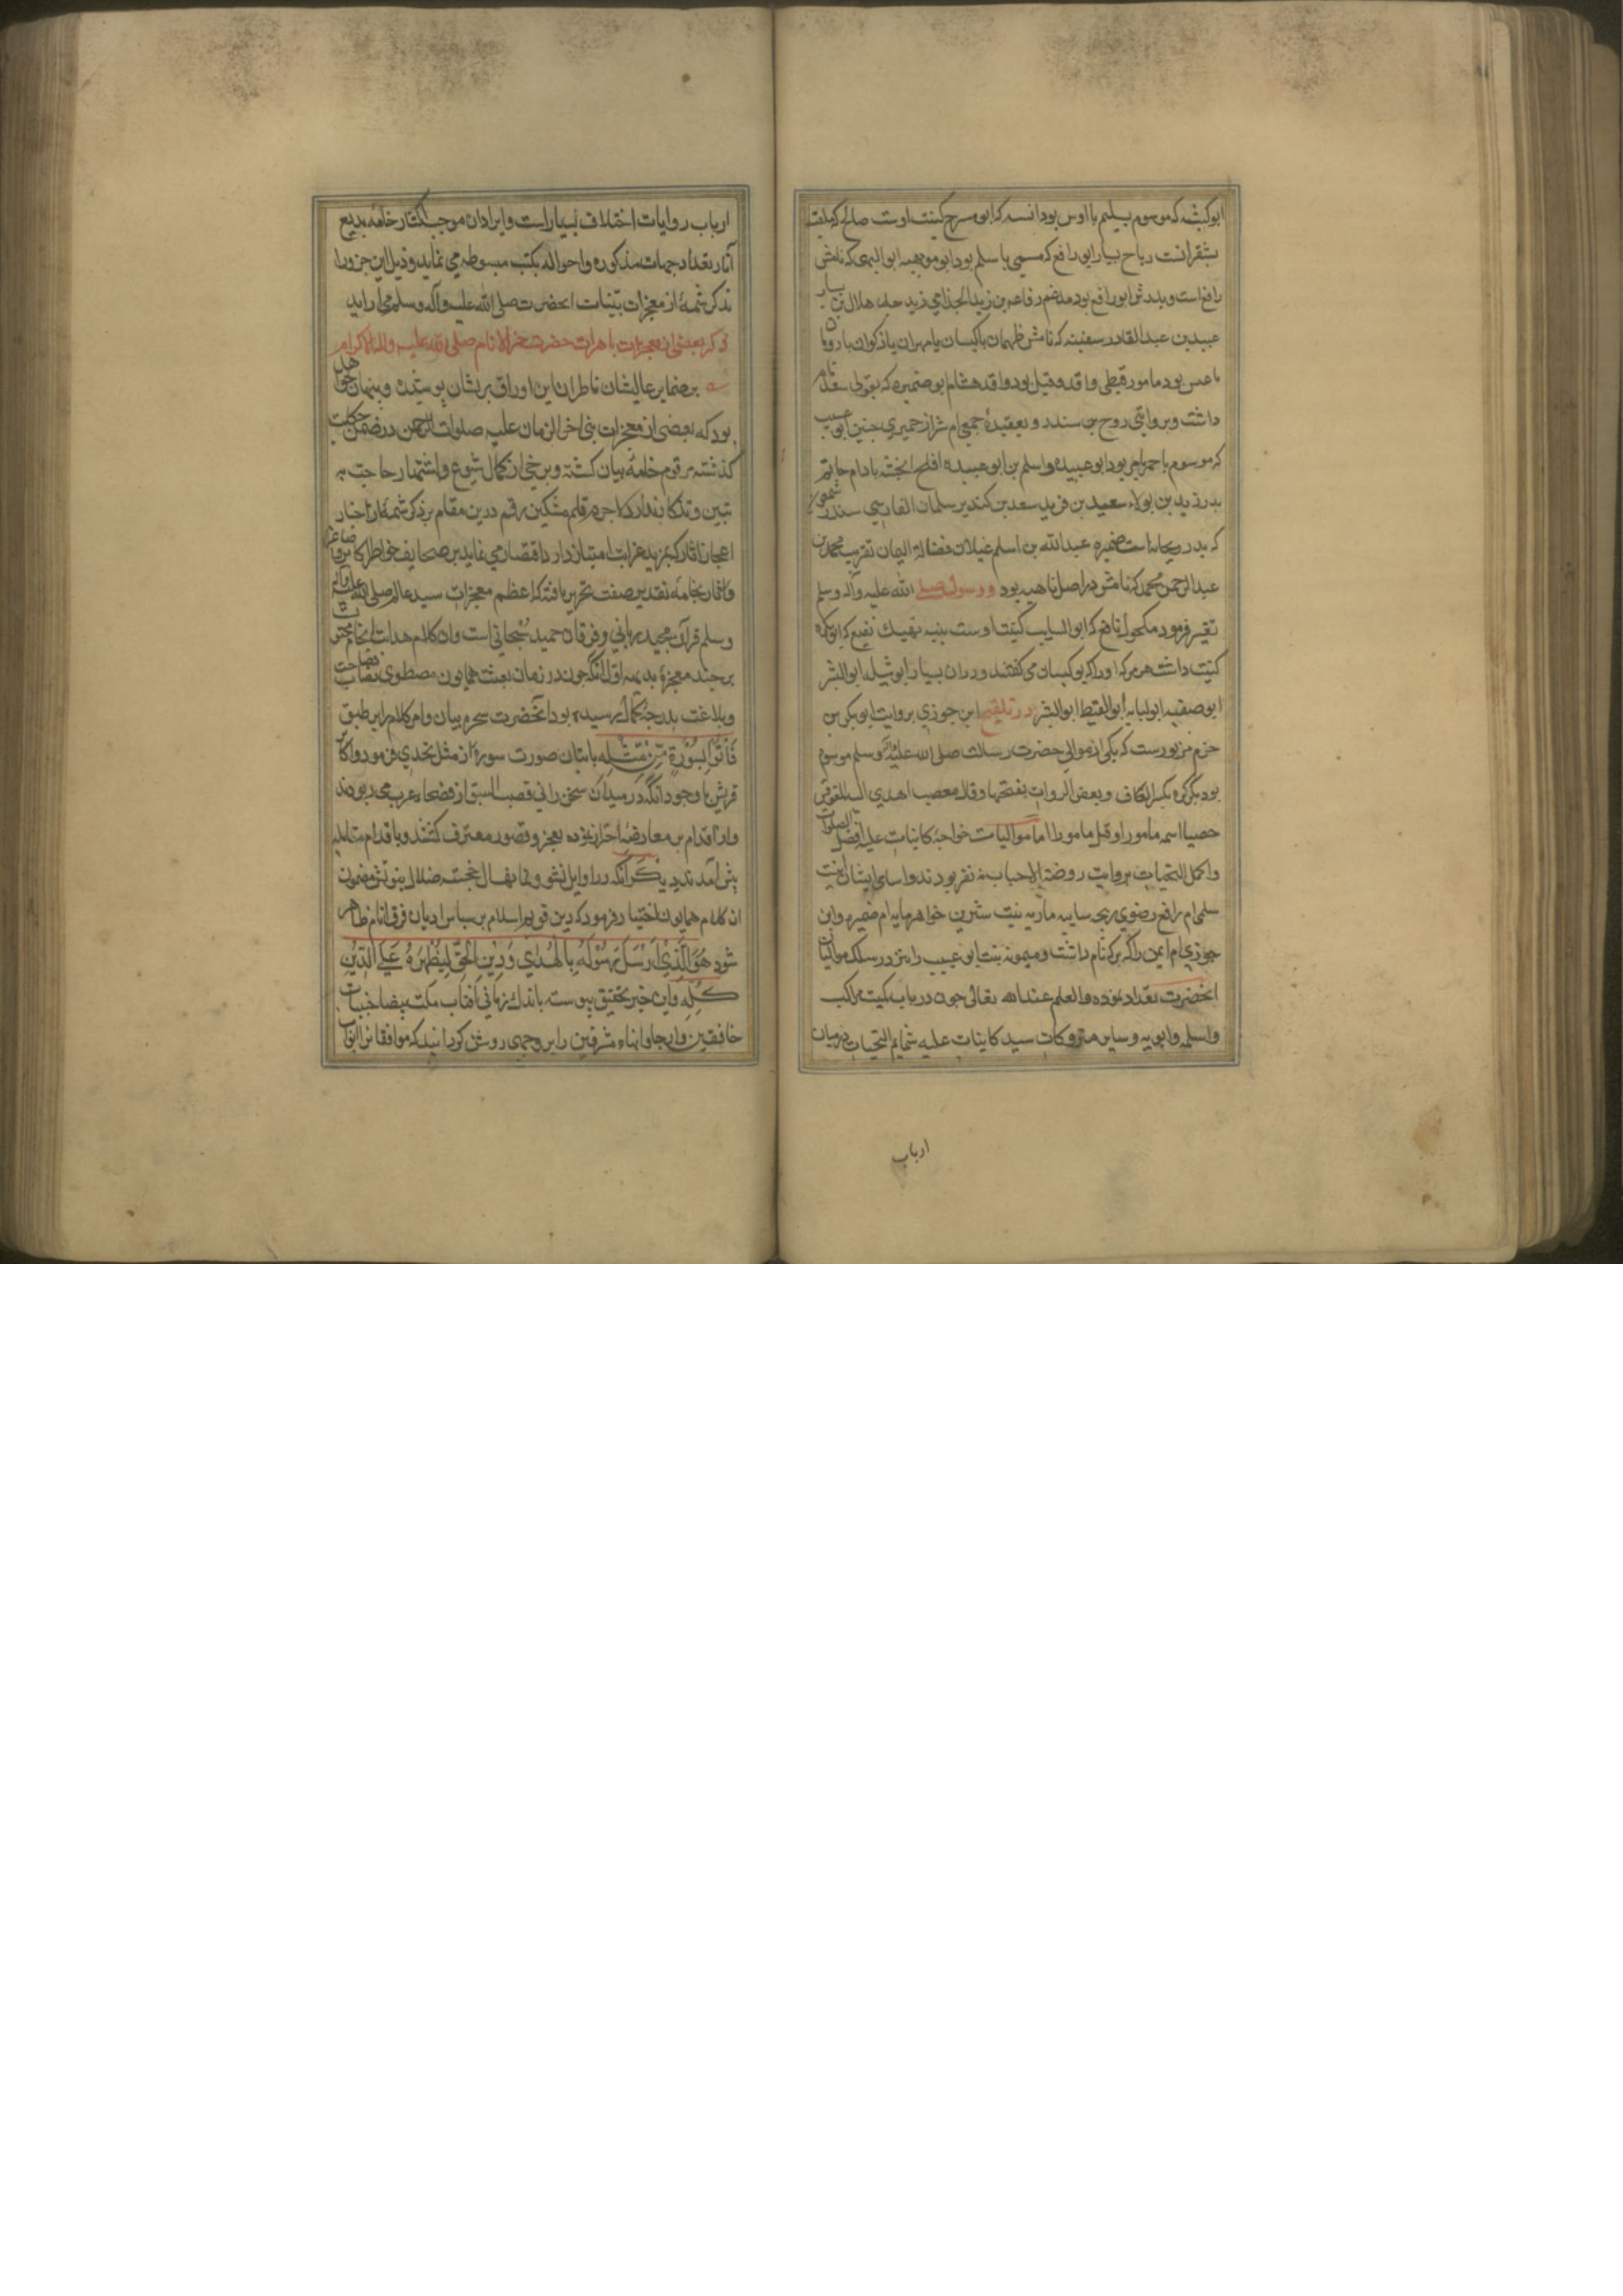 ابوکبشه که موسوم بسلیم یا اوس بود انسه که ابو مسرح کنیت اوست صالح که ملقب
بشقرانست رباح یسار ابو رافع که مسمی با سلم بود ابو مویهبه ابوالبهی که نامش
رافع است و پدرش ابو رافع بود مدغم رفاعه بن زید الجذامی زید جد هلال بن یسار
عبید بن عبد القادر سفینه که نامش طهمان یا کیسان یا مهران یا ذکوان یا رومان
یا عبس بود مامور قبطی واقد و قیل بود واقد هشام ابو ضمیره که بقولی سعد نام
داشت و بروایتی روح بن سندر و بعقیدهٔ جمعی ام شراز حمیری حنین ابو عسیب
که موسوم باحمر یا مر بود ابو عبیده و اسلم بن ابو عبیده افلح انجشه بادام حاتم
بدر زید بن بولاء سعید بن فرید سعد بن کندیر سلمان الفارسی سندر شمعون
که پدر ریحانه است ضمیره عبدالله بن اسلم غیلان فضاله الیمان نقریب محمد بن
عبدالرحمن محمد که نامش در اصل ناهیه بود و رسول صلی الله علیه وآله وسلم
تغییر فرمود مکحول نافع که ابو السایب کنیت اوست بنیه نهیک نفیع که ابو بکره
کنیت داشت هرمز که او را کیو کیسان می گفتند وردان یسار ابو اثیله ابو البشر
ابو صفیه ابو لبابه ابو القیط ابو البشر در تلقیح ابن جوزی بروایت ابو بکر بن
حزم مزبورست که یکی از موالی حضرت رسالت صلی الله علیه وآله وسلم موسوم
بود بکرکره بکسر الکاف و بعض الروات بفتحها و قد معصب اهدی الیه المقوقس
حصیا اسمه مامور او قیل مامورا اما موالیات خواجهٔ کاینات علیه افضل الصلوات
و اکمل التحیات بروایت روضة الاحباب نه نفر بودند و اسامی ایشان اینست
سلمی ام رافع رضوی ریحه سایبه ماریه بنت شیرین خواهر ماریه ام ضمیره و ابن
جوزی ام ایمن را که برکه نام داشت و میمونه بنت ابو عسیب را نیز در سلک موالیان
انحضرت تعداد نموده والعلم عند الله تعالی چون در باب کمیت مراکب
و اسلحه و ابویه و سایر متروکات سید کاینات علیه شمایم التحیات در میان
ارباب
ارباب روایات اختلاف بسیار است و ایراد ان موجب اکثار خامهٔ بدیع
آثار تعداد جهات مذکوره و احواله بکتب مبسوطه می نماید و ذیل این جزو را
بذکر شمهٔ از معجزات بینات انحضرت صلی الله علیه وآله وسلم می اراید
ذکر بعضی از معجزات باهرات حضرت خیر الانام صلی الله علیه واله الکرام
بر ضمایر عالیشان ناظران این اوراق پریشان پوشیده و پنهان نخواهد
بود که بعضی از معجزات نبی اخر الزمان علیه صلوات الرحمن در ضمن حکایت
گذشته مرقوم خامهٔ بیان گشته و برخی از کمال شیوع و اشتهار حاجت به
تبیین و تذکار ندارد لاجرم قلم مشکین رقم درین مقام بر ذکر شمهٔ از اخبار
اعجاز اثار که بمزید غرابت امتیاز دارد اقتصار می نماید بر صحایف خواطر اکابر
و اقار بخامهٔ تقدیر صفت تحریر یافته که اعظم معجزات سید عالم صلی الله علیه وآله
وسلم قرآن مجید ربانی و فرقان حمید سبحانی است و ان کلام هدایت انجام محتوی
بر چند معجزهٔ بدیعه اول انکه چون در زمان بعثت همایون مصطفوی فصاحت
و بلاغت بدرجهٔ کمال رسیده بود انحضرت سحر بیان وامر کلام ایر طبق
فَأْتُوا بِسُورَةٍ مِّن مِّثْلِهِ باتیان صورت سورهٔ از مثل تحدی فرمود و اکابر
قریش با وجود انکه در میدان سخن رانی قصب السبق از فصحاء عرب می ربودند
واز اقدام بر معارضه احتراز نموده بعجز و قصور معترف گشتند و باقدام مقابله
پیش آمدند دیگر آنکه در اوایل نشو و نما نهال خجسته ضلال بنوتش مضمون
ان کلام همایون اختیار فرمود که دین قویم اسلام بر سایر ادیان فرق انام ظاهر
شود هُوَ الَّذِي أَرْسَلَ رَسُولَهُ بِالْهُدَى وَدِينِ الْحَقِّ لِيُظْهِرَهُ عَلَى الدِّينِ
كُلِّهِ و این خبر بتحقیق پیوسته باندک زمانی افتاب مکت بیضا جنبات
خافقین و ارجاء و انحاء مشرقین را بر وجهی روشن گردانید که موافقان ابواب